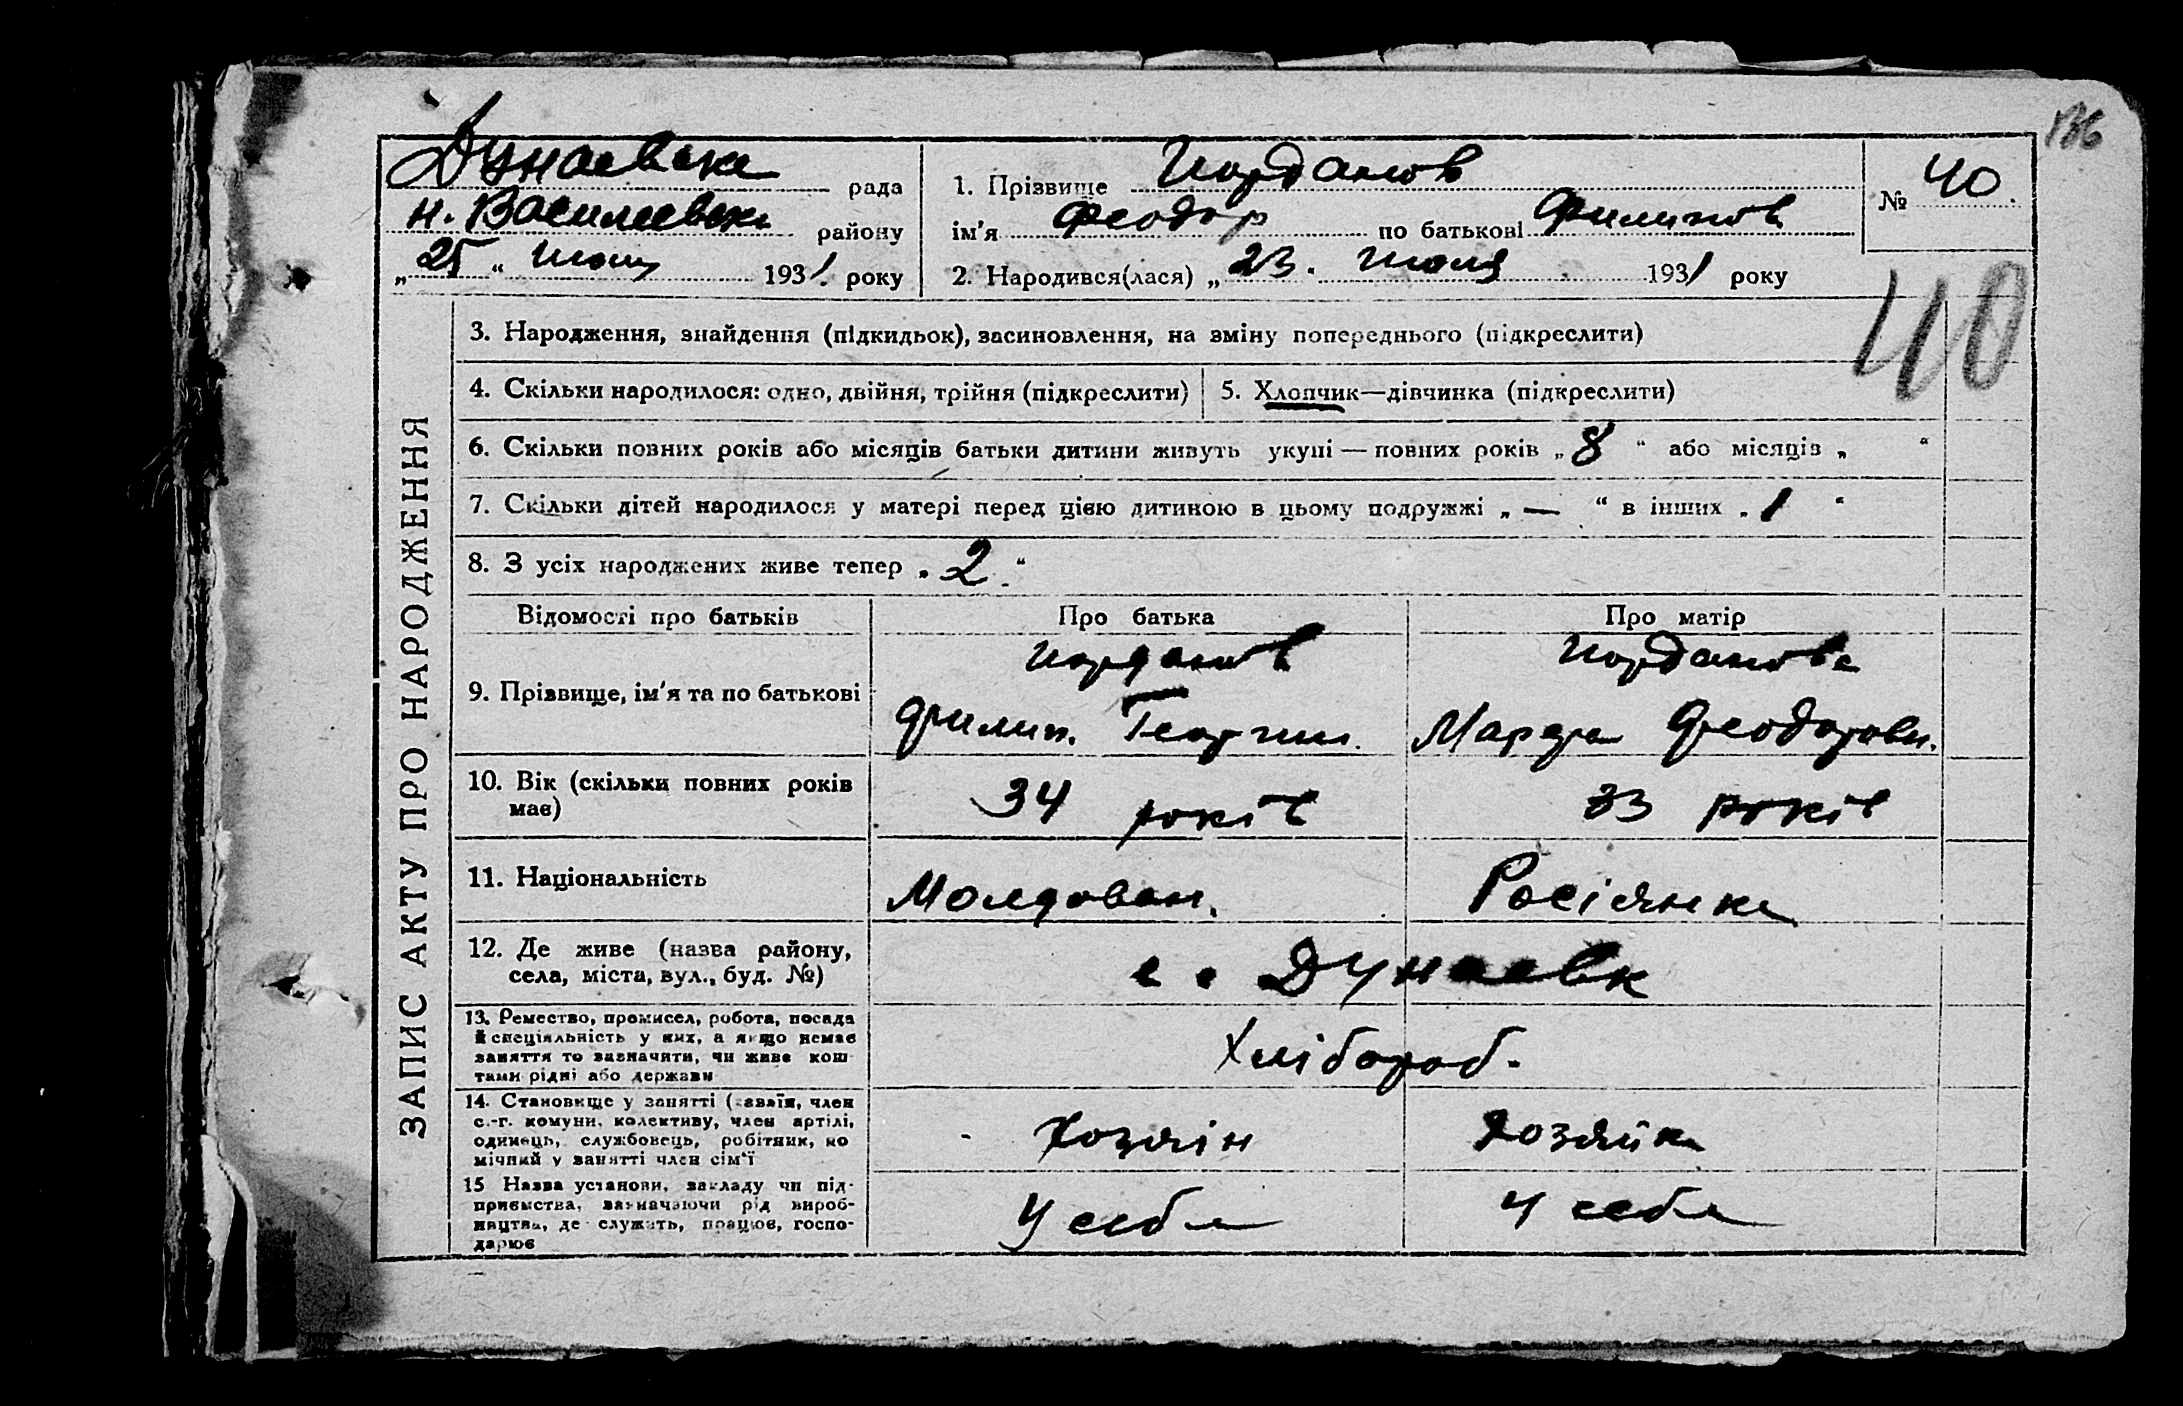 186
Дунаевска рада
н. Василевск району
„ 25 “ Июля 1931 року
1. Прізвище Иорданов
ім'я Феодор по батькові Филипов
2. Народився(лася) „ 23. Июля 1931 року
№ 40
40
ЗАПИС АКТУ ПРО НАРОДЖЕННЯ
3. Народження, знайдення (підкидьок), засиновлення, на зміну попереднього (підкреслити)
4. Скільки народилося: одно, двійня, трійня (підкреслити)
5. Хлопчик—дівчинка (підкреслити)
6. Скільки повних років або місяців батьки дитини живуть укупі — повних років „ 8 “ або місяців „ “
7. Скільки дітей народилося у матері перед цією дитиною в цьому подружжі „ — “ в інших „ 1 “
8. З усіх народжених живе тепер „ 2 “
Відомості про батьків Про батька Про матір
9. Прізвище, ім'я та по батькові
Иорданов
Филип. Георгии.
Иорданова
Марфа Феодоровн.
10. Вік (скільки повних років має)
34 років
33 років
11. Національність
Молдован.
Росіянка
12. Де живе (назва району,
села, міста, вул., буд. №)
с. Дунаевк
13. Ремество, промисел, робота, посада
й спеціяльність у них, а якщо немає
заняття то зазначити, чи живе кош-
тами рідні або держави
Хлібороб.
14. Становище у занятті (хазяїн, член
с.-г. комуни, колективу, член артілі,
одинець, службовець, робітник, по-
мічний у занятті член сім'ї
Хозяін
Хозяйка
15 Назва установи, закладу чи під-
приємства, зазначаючи рід вироб-
ництва, де служить, працює, госпо-
дарює
У себя
У себя